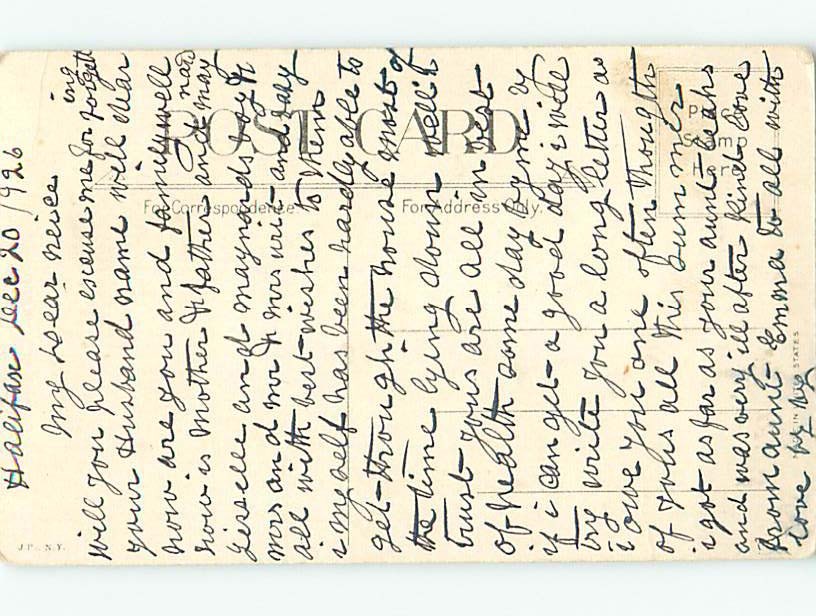 Halifax Dec 20/926
My Dear neice
will you please excuse me for forgetting
your Husband name well dear
how are you and family well
how is Mother & father and may
Giselle and maynards boy &
mrs and mr & mrs and baby
all with best wishes to them
i my self has been hardly able to
get through the house most of
the time lying down well i
trust yous are all in best
of health some day my
if i can get a good day i will
try write you a long letter as
i owe you one often thought
of yous all this Summer
i got as far as your aunt Leahs
and was very ill after kind love
from aunt Emma to all with
love by by
POST CARD
For Correspondence.
For Address Only.
Place
Stamp
Here
J.P. N.Y.
STATES